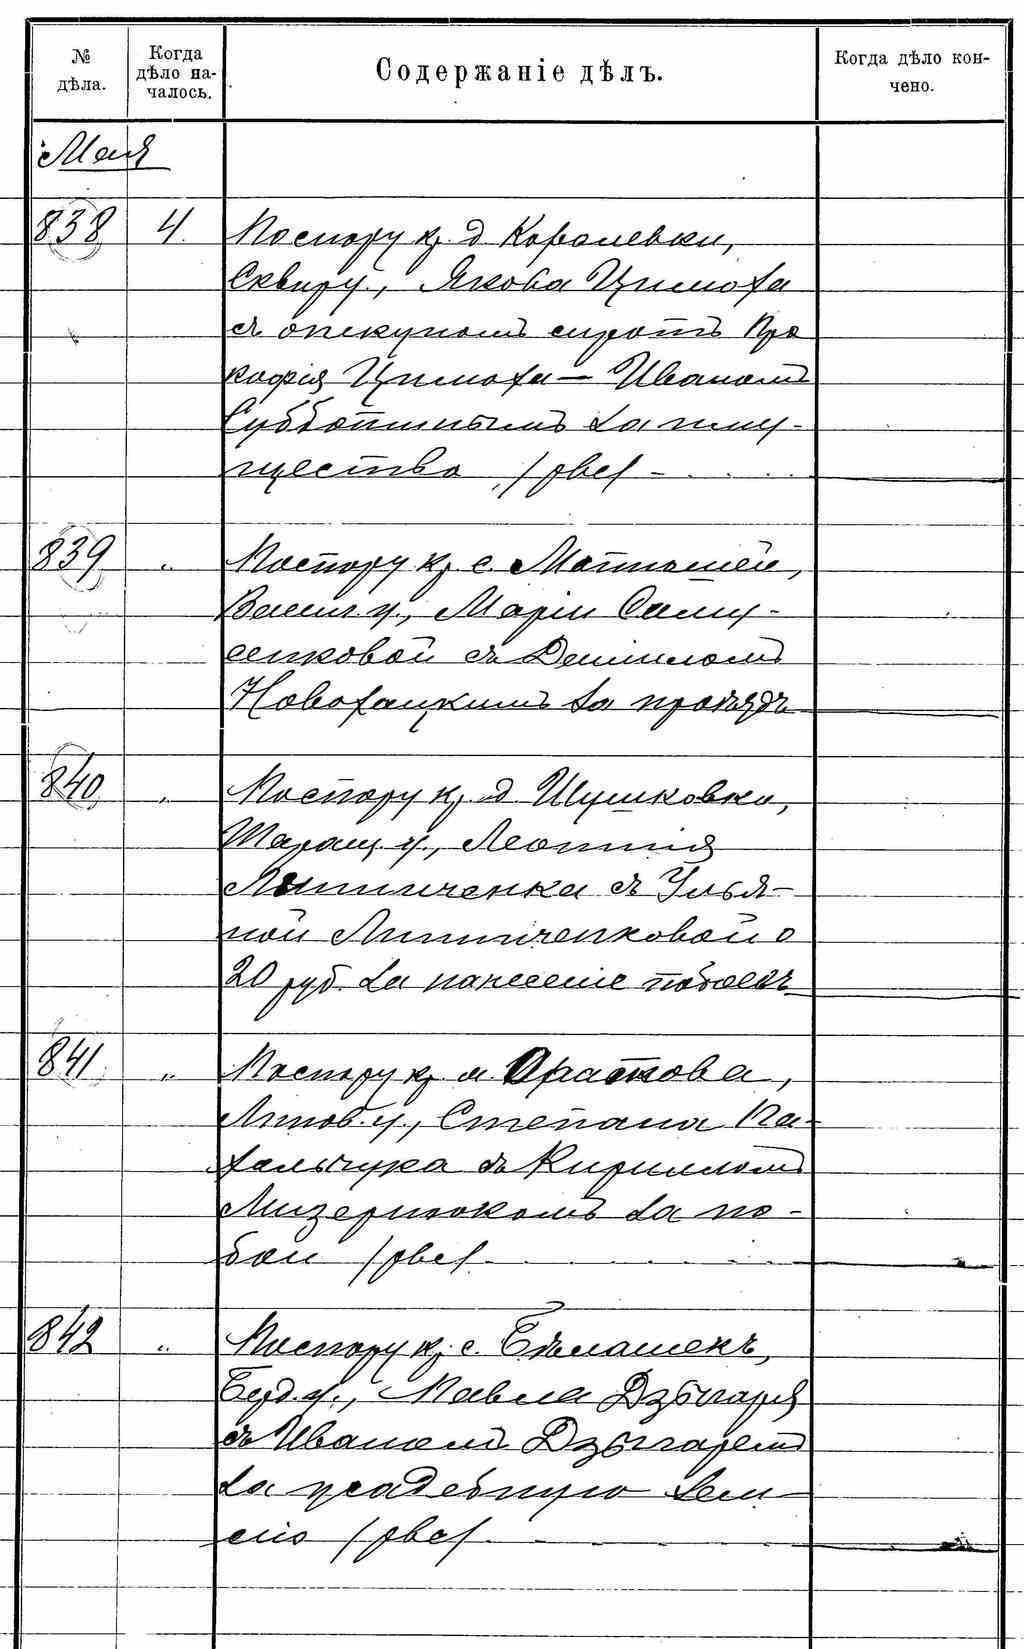 № дѣла.
Когда дѣло началось.
Содержаніе дѣлъ.
Когда дѣло кончено.
Мая
838 4. По спору кр. д. Королевки,
Сквиру., Якова Цимоха
съ опекуномъ сиротъ Про
кофія Цимоха — Иваномъ
Субботинымъ за иму-
щество
839 „ По спору кр. с.
Васил. у., Маріи Саму-
сенковой съ Даниломъ
Новохацкимъ за проѣздъ
840 „ По спору кр. д. Шушковки,
Таращ. у., Леонтія
Литвиченка съ Улья-
ной Литвиченковой о
20 руб. за нанесеніе побоевъ
841 „ По спору кр. м. Оратова,
Липов. у., Степана Па-
хальчука съ Кирилломъ
Мизернюкомъ за по-
бои
842 „ По спору кр. с. Бѣлашекъ,
Берд. у., Павла Дзыгаря
съ Иваномъ Дзыгаремъ
за усадебную зем-
лю